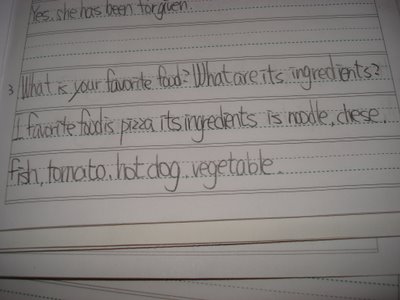 Yes, she has been forgiven.
3 What is your favorite food? What are its ingredients?
I favorite food is pizza its ingredients is noodle, chese,
fish, tomato, hot dog, vegetable.